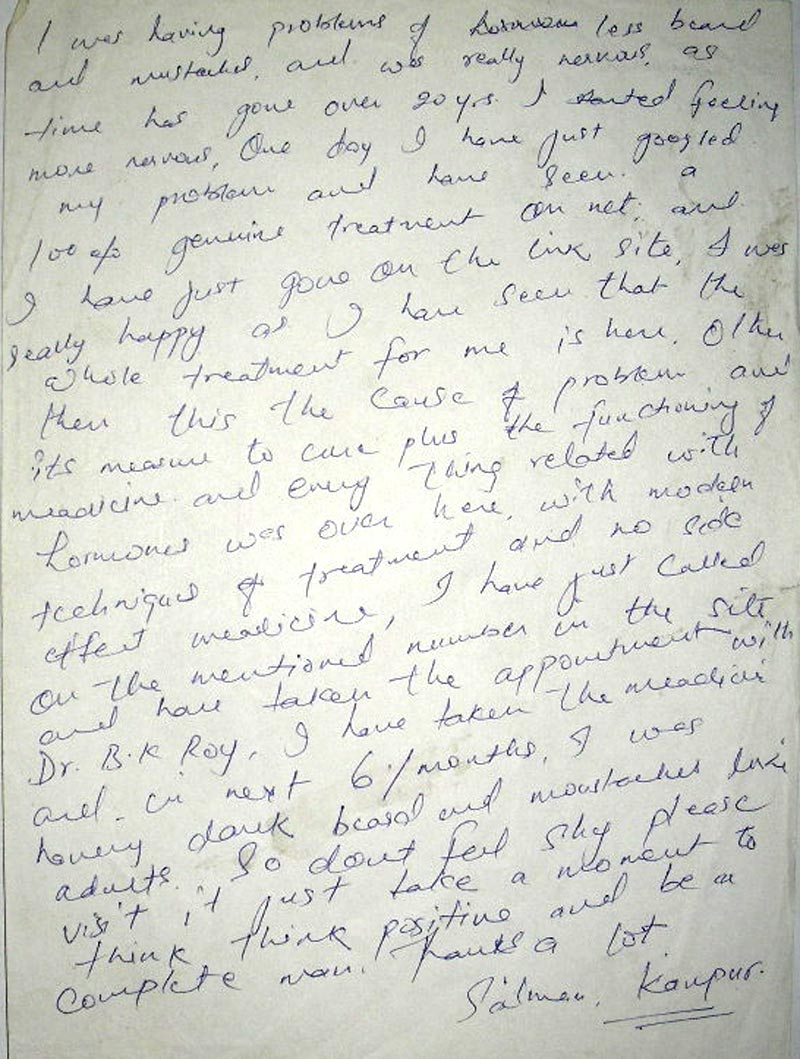 I was having problems of less beard
and mustaches, and was really nervous, as
time has gone over 20 yrs. I started feeling
more nervous, One day I have just googled
my problem and have seen a
100% genuine treatment on net, and
I have just gone on the link site, I was
really happy as I have seen that the
whole treatment for me is here. Other
then this the cause of problem and
its measure to cure plus the functioning of
meadicine and every thing related with
hormones was over here, with modern
techniques of treatment and no side
effect meadicine, I have just called
on the mentioned number in the site
and have taken the appointment with
Dr. B.K Roy, I have taken the meadicine
and in next 6/months, I was
having dark beard and moustaches like
adults. So dont feel shy please
visit it just take a moment to
think think positive and be a
complete man. Thanks a lot
Salman, Kanpur.